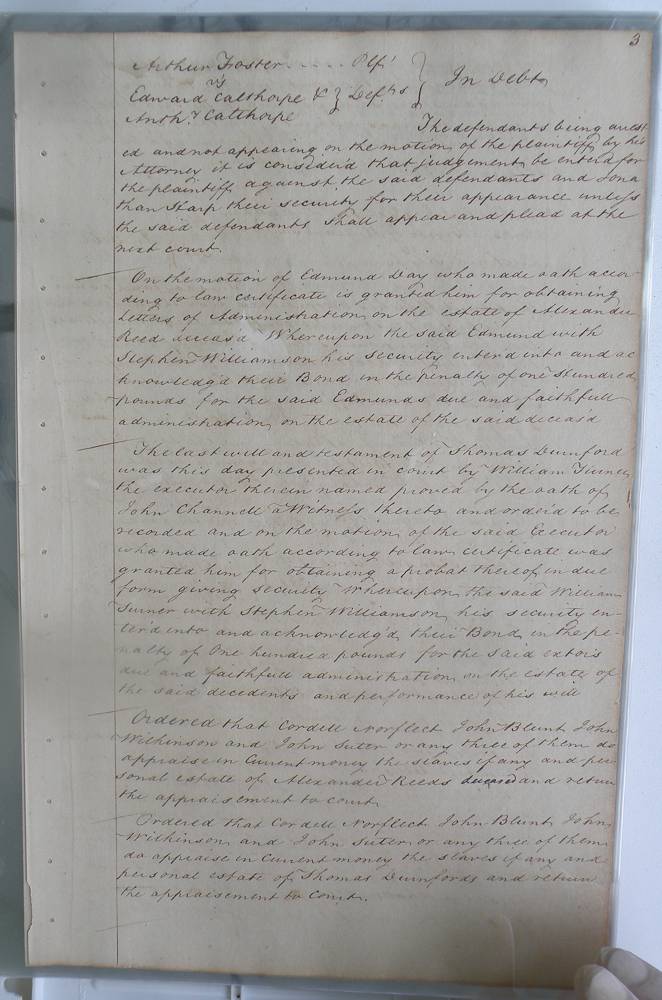 3
Arthur Foster ..... Plf'
vs
Edward Calthorpe & } Def.ts } In Debt
Anth.y Calthorpe
The defendants being arrest
ed and not appearing on the motion of the plaintiff by his
Attorney it is consider'd that judgement be enter'd for
the plaintiff against the said defendants and Jona
than Sharp their security for their appearance unless
the said defendants shall appear and plead at the
next court.
On the motion of Edmund Day who made oath accor-
ding to law certificate is granted him for obtaining
Letters of Administration on the estate of Alexander
Reed deceas'd Whereupon the said Edmund with
Stephen Williamson his security enter'd into and ac
knowledg'd their Bond in the penalty of one Hundred
pounds for the said Edmunds due and faithfull
administration on the estate of the said deceas'd
The last will and testament of Thomas Durnford
was this day presented in court by William Turner
the executor therein named proved by the oath of
John Channell a Witness thereto and order'd to be
recorded and on the motion of the said Executor
who made oath according to law certificate was
granted him for obtaining a probat thereof in due
form giving security Whereupon the said William
Turner with Stephen Williamson his security en-
ter'd into and acknowledg'd their Bond in the pe-
nalty of One hundred pounds for the said extor's
due and faithfull administration on the estate of
the said decedents and performance of his will
Ordered that Cordell Norfleet John Blunt John
Wilkinson and John Suter or any three of them do
appraise in Current money the slaves if any and per
sonal estate of Alexander Reeds deceased and return
the appraisement to court
Ordered that Cordell Norfleet John Blunt John
Wilkinson and John Suter or any three of them
do appraise in Current money the slaves if any and
personal estate of Thomas Durnfords and return
the appraisement to Court.